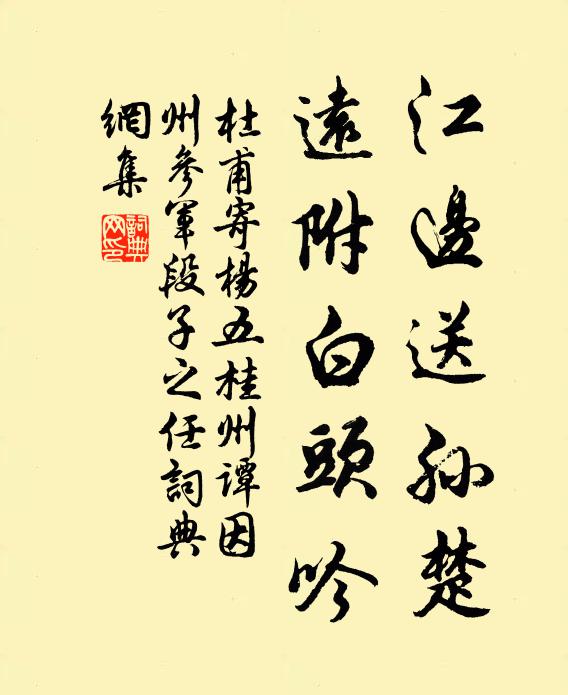 江邊送孫楚
遠附白頭吟
杜甫寄楊五桂州譚因
州參軍段子之任詞典
網集
詞典
网印